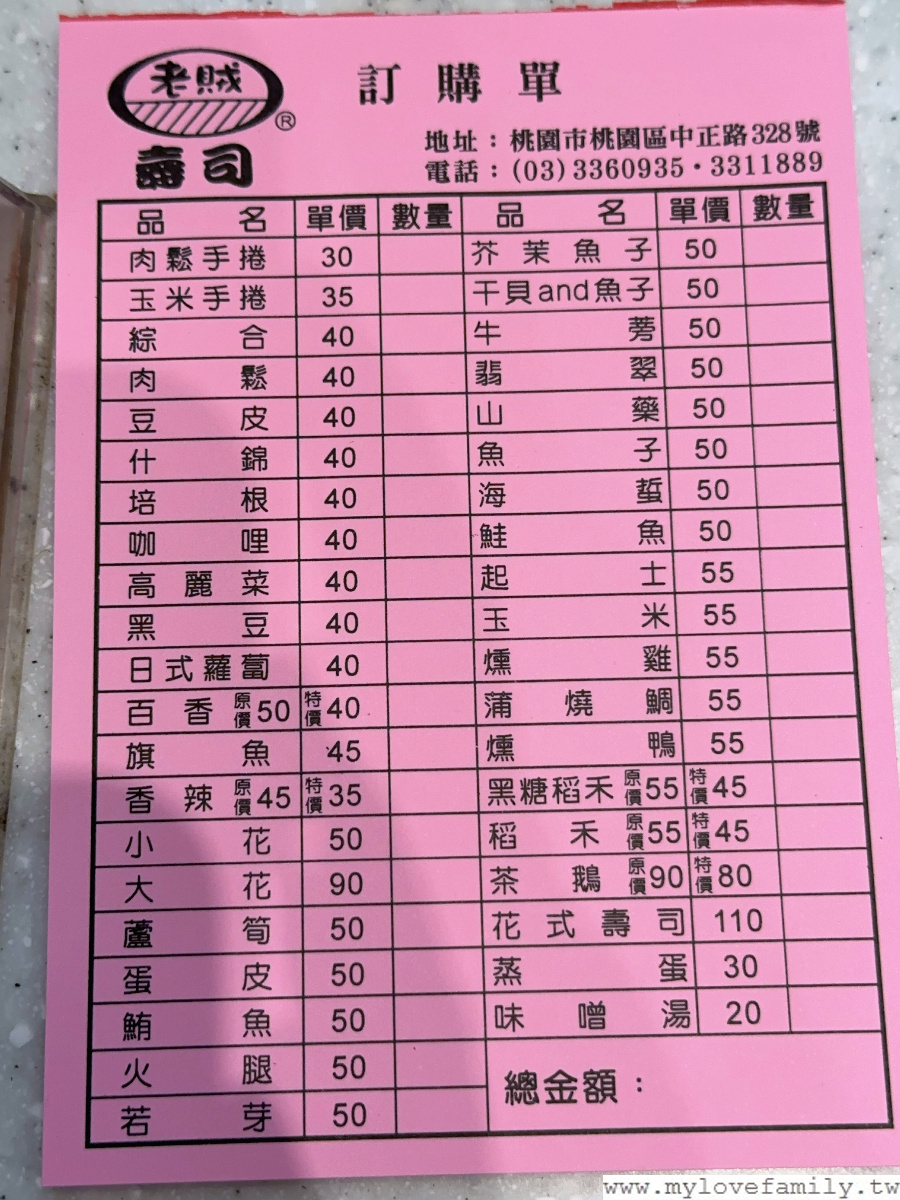 老賊
®
壽司
訂購單
地址：桃園市桃園區中正路328號
電話：(03)3360935・3311889
品名 單價 數量 品名 單價 數量
肉鬆手捲 30 芥茉魚子 50
玉米手捲 35 干貝and魚子 50
綜合 40 牛蒡 50
肉鬆 40 翡翠 50
豆皮 40 山藥 50
什錦 40 魚子 50
培根 40 海蜇 50
咖哩 40 鮭魚 50
高麗菜 40 起士 55
黑豆 40 玉米 55
日式蘿蔔 40 燻雞 55
百香 原價50 特價40 蒲燒鯛 55
旗魚 45 燻鴨 55
香辣 原價45 特價35 黑糖稻禾 原價55 特價45
小花 50 稻禾 原價55 特價45
大花 90 茶鵝 原價90 特價80
蘆筍 50 花式壽司 110
蛋皮 50 蒸蛋 30
鮪魚 50 味噌湯 20
火腿 50 總金額：
若芽 50
www.mylovefamily.tw